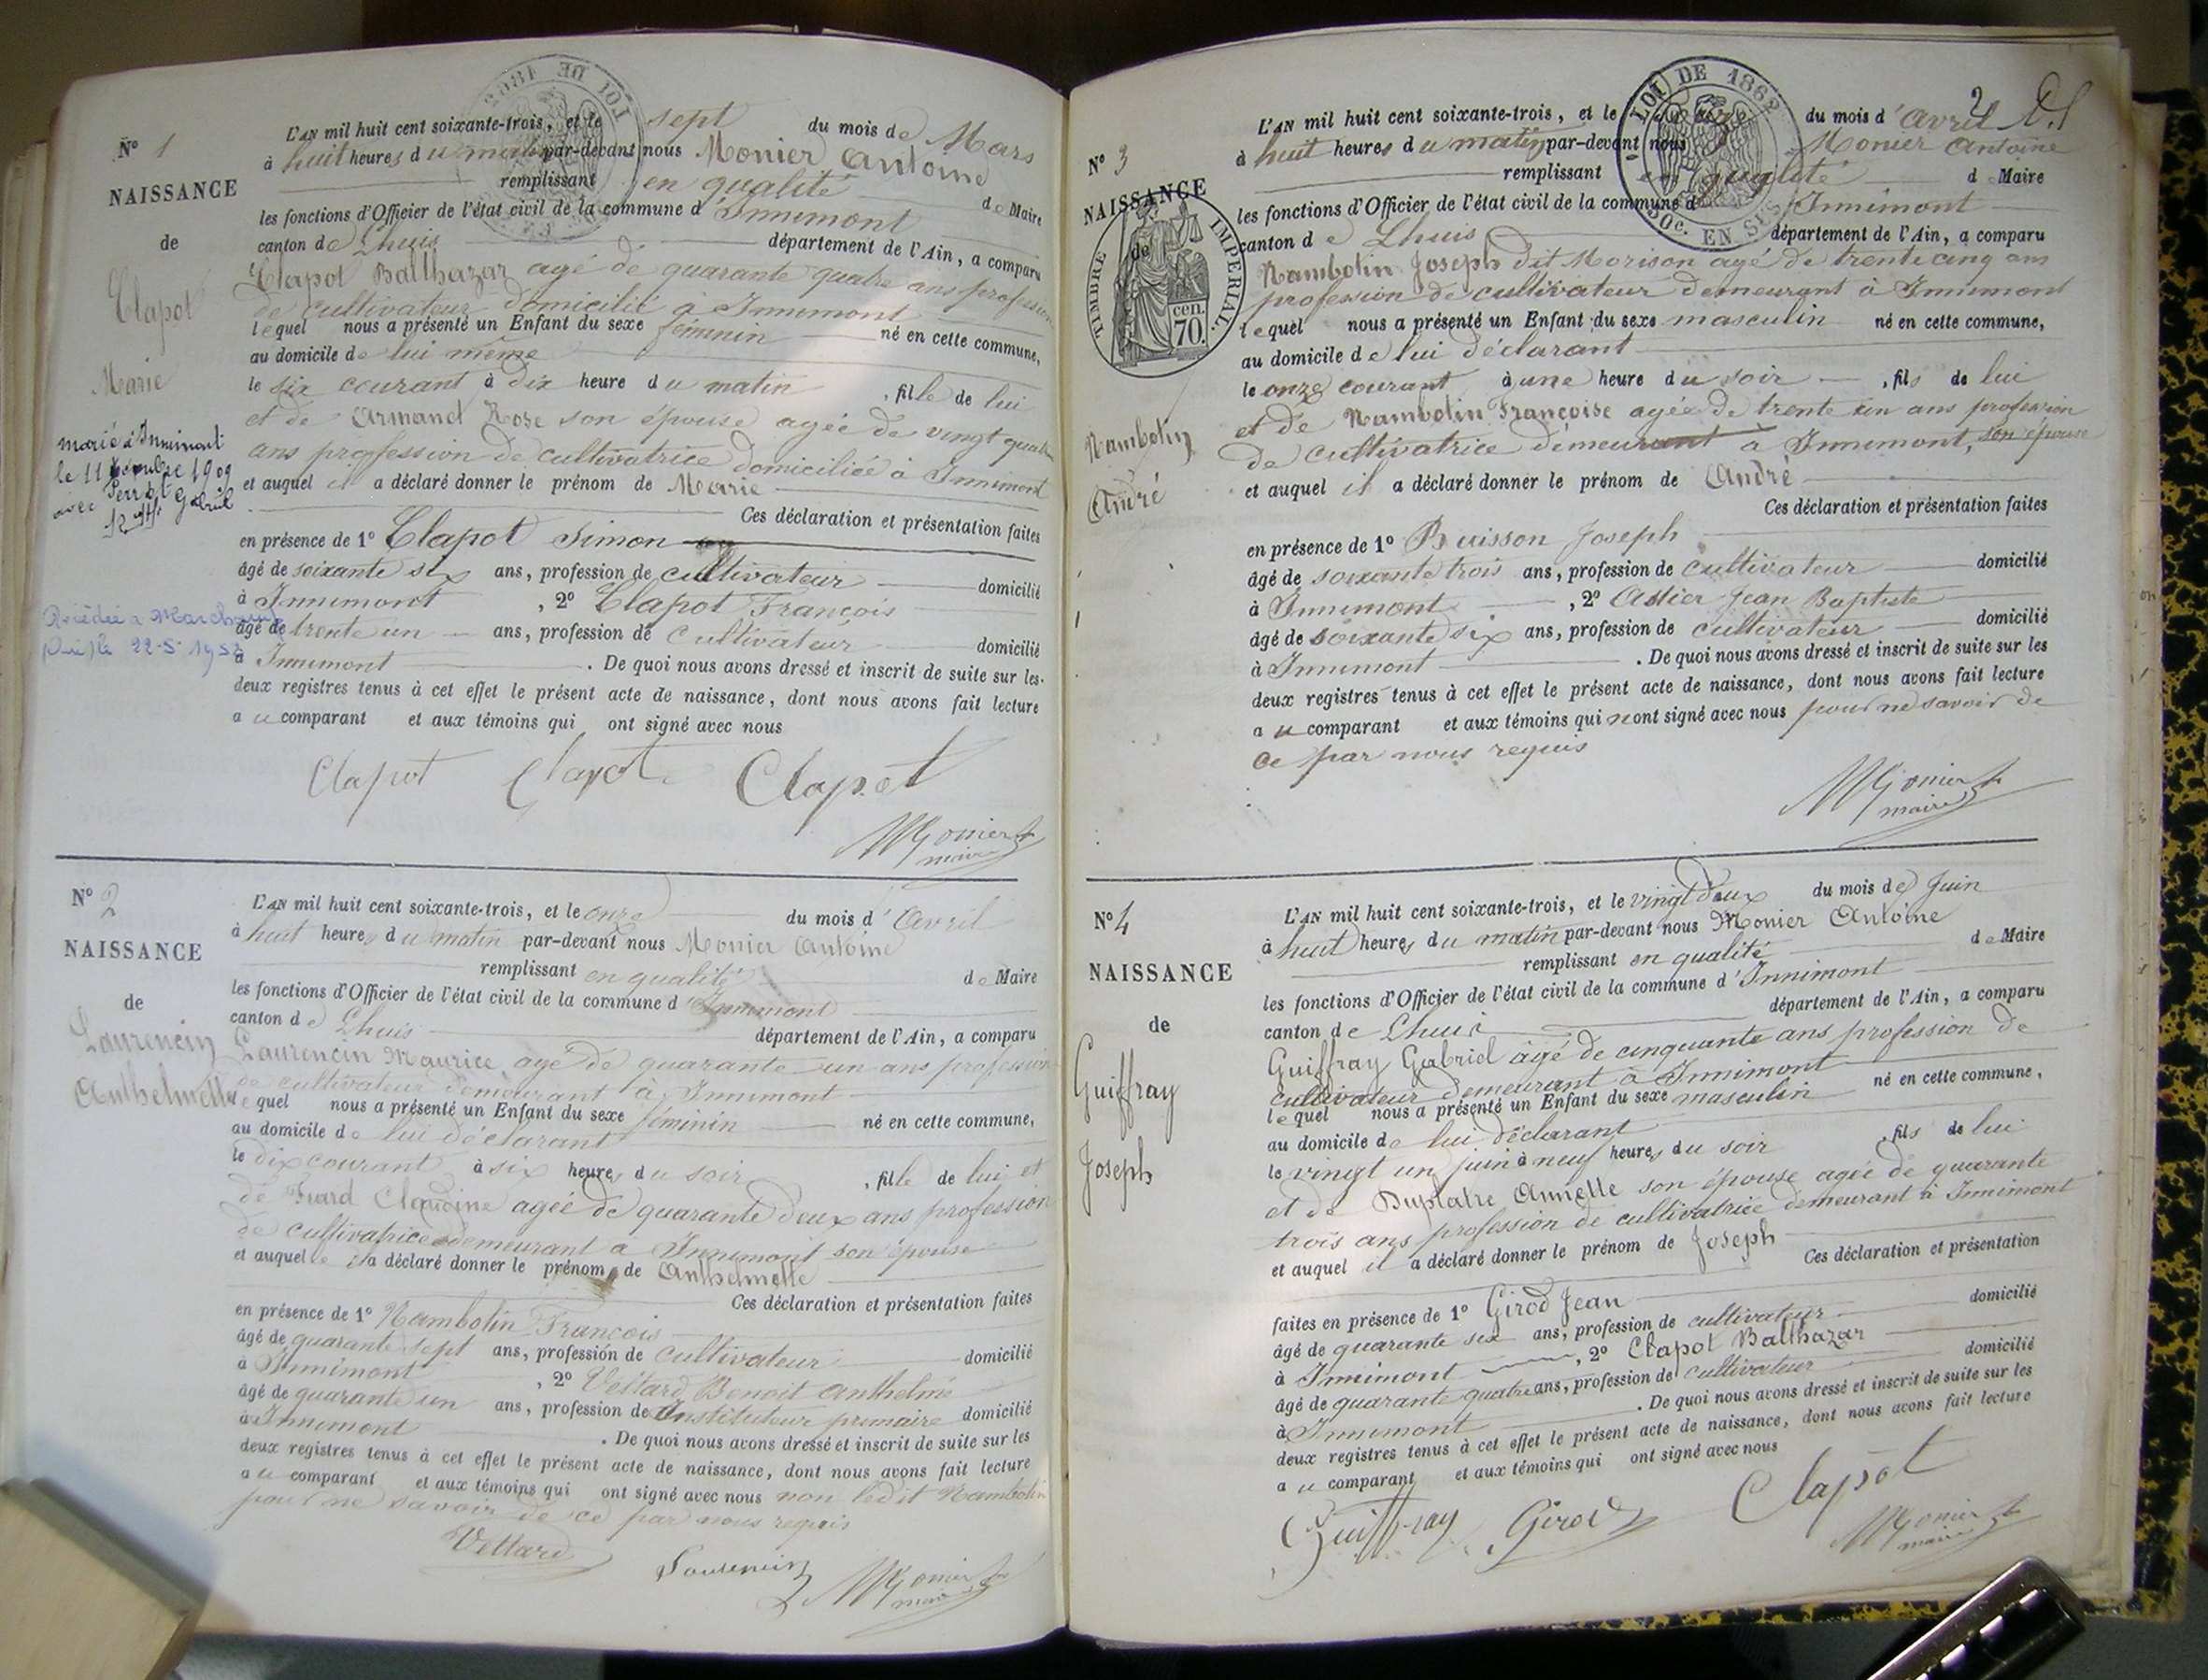 N° 1
NAISSANCE
de
Clapot
Marie
marié à Innimont
le 11 1909
avec Perret Gabriel
Décédée à
le 22-5-195
LOI DE 1862
L'AN mil huit cent soixante-trois, et le sept du mois de Mars
à huit heures du matin par-devant nous Monier Antoine
remplissant en qualité de Maire
les fonctions d'Officier de l'état civil de la commune d'Innimont
canton de Lhuis département de l'Ain, a comparu
Clapot Balthazar agé de quarante quatre ans profession
de cultivateur domicilié à Innimont
lequel nous a présenté un Enfant du sexe féminin né en cette commune,
au domicile de lui même
le six courant à dix heure du matin, fille de lui
et de Armand Rose son épouse agée de vingt quatre
ans profession de cultivatrice domiciliée à Innimont
et auquel il a déclaré donner le prénom de Marie
Ces déclaration et présentation faites
en présence de 1° Clapot Simon
âgé de soixante six ans, profession de cultivateur domicilié
à Innimont, 2° Clapot François
âgé de trente un ans, profession de cultivateur domicilié
à Innimont. De quoi nous avons dressé et inscrit de suite sur les
deux registres tenus à cet effet le présent acte de naissance, dont nous avons fait lecture
au comparant et aux témoins qui ont signé avec nous
Clapot Clapot Clapot
Monier
maire
N° 2
NAISSANCE
de
Laurencin
Anthelmette
L'AN mil huit cent soixante-trois, et le onze du mois d'Avril
à huit heures du matin par-devant nous Monier Antoine
remplissant en qualité de Maire
les fonctions d'Officier de l'état civil de la commune d'Innimont
canton de Lhuis département de l'Ain, a comparu
Laurencin Maurice agé de quarante un ans profession
de cultivateur demeurant à Innimont
lequel nous a présenté un Enfant du sexe féminin né en cette commune,
au domicile de lui déclarant
le dix courant à six heures du soir, fille de lui et
de Claudine agée de quarante deux ans profession
de cultivatrice demeurant à Innimont son épouse
et auquel il a déclaré donner le prénom de Anthelmette
Ces déclaration et présentation faites
en présence de 1° Nambotin François
âgé de quarante sept ans, profession de cultivateur domicilié
à Innimont, 2° Vettard Benoit Anthelme
âgé de quarante un ans, profession de Instituteur primaire domicilié
à Innimont. De quoi nous avons dressé et inscrit de suite sur les
deux registres tenus à cet effet le présent acte de naissance, dont nous avons fait lecture
au comparant et aux témoins qui ont signé avec nous non ledit Nambotin
pour ne savoir de ce par nous requis
Vettard Laurencin Monier
maire
2
N° 3
NAISSANCE
de
TIMBRE IMPERIAL.
70 cen.
Nambotin
André
LOI DE 1862
50c. EN SUS
L'AN mil huit cent soixante-trois, et le du mois d'Avril
à huit heures du matin par-devant nous Monier Antoine
remplissant en qualité de Maire
les fonctions d'Officier de l'état civil de la commune d'Innimont
canton de Lhuis département de l'Ain, a comparu
Nambotin Joseph dit Morison agé de trente cinq ans
profession de cultivateur demeurant à Innimont
lequel nous a présenté un Enfant du sexe masculin né en cette commune,
au domicile de lui déclarant
le onze courant à une heure du soir, fils de lui
et de Nambotin Françoise agée de trente un ans profession
de cultivatrice demeurant à Innimont, son épouse
et auquel il a déclaré donner le prénom de André
Ces déclaration et présentation faites
en présence de 1° Buisson Joseph
âgé de soixante trois ans, profession de cultivateur domicilié
à Innimont, 2° Astier Jean Baptiste
âgé de soixante six ans, profession de cultivateur domicilié
à Innimont. De quoi nous avons dressé et inscrit de suite sur les
deux registres tenus à cet effet le présent acte de naissance, dont nous avons fait lecture
au comparant et aux témoins qui n'ont signé avec nous pour ne savoir de
ce par nous requis
Monier
maire
N° 4
NAISSANCE
de
Guiffray
Joseph
L'AN mil huit cent soixante-trois, et le vingt deux du mois de Juin
à huit heures du matin par-devant nous Monier Antoine
remplissant en qualité de Maire
les fonctions d'Officier de l'état civil de la commune d'Innimont
canton de Lhuis département de l'Ain, a comparu
Guiffray Gabriel âgé de cinquante ans profession de
cultivateur demeurant à Innimont
lequel nous a présenté un Enfant du sexe masculin né en cette commune,
au domicile de lui déclarant
le vingt un juin à neuf heures du soir, fils de lui
et de Duplatre Annette son épouse agée de quarante
trois ans profession de cultivatrice demeurant à Innimont
et auquel il a déclaré donner le prénom de Joseph
Ces déclaration et présentation
faites en présence de 1° Girod Jean
âgé de quarante six ans, profession de cultivateur domicilié
à Innimont, 2° Clapot Balthazar
âgé de quarante quatre ans, profession de cultivateur domicilié
à Innimont. De quoi nous avons dressé et inscrit de suite sur les
deux registres tenus à cet effet le présent acte de naissance, dont nous avons fait lecture
au comparant et aux témoins qui ont signé avec nous
Guiffray Girod Clapot
Monier
maire